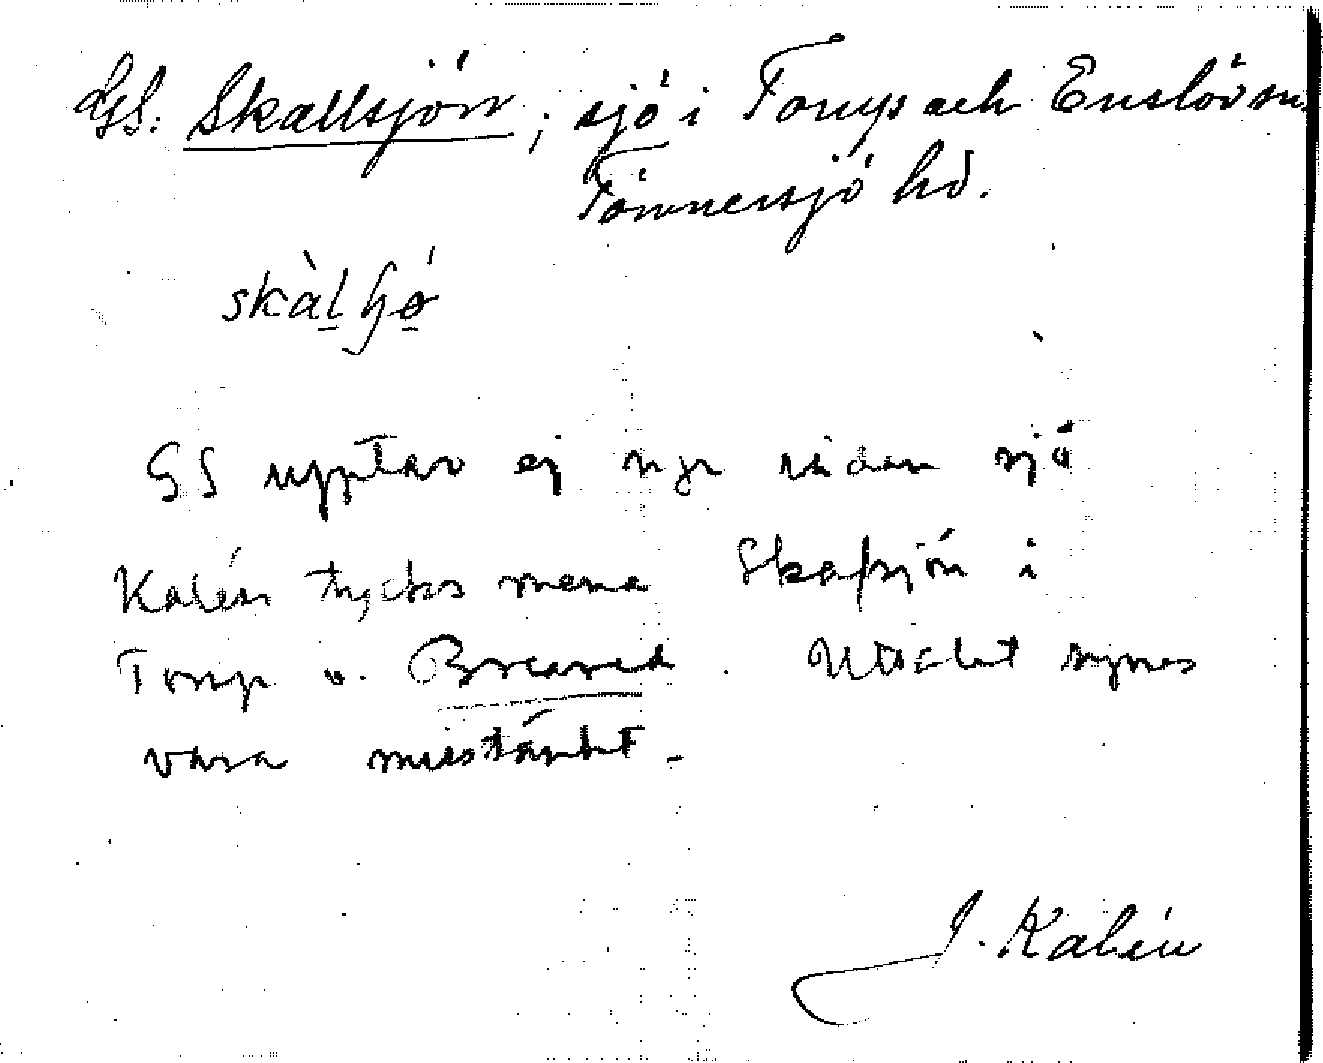 GS: Skallsjön; sjö i Torup och Enslöv sn.
Tönnersjö hd.
GS upptar ej ngn sådan sjö
Kalén tycks mena Skafsjön i
Torup o. Breared. Uttalet synes
vara misstänkt.
J. Kalén